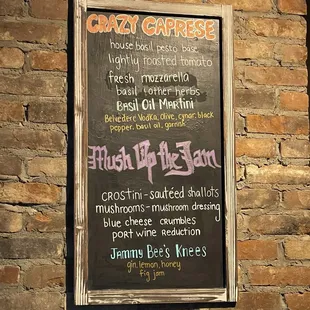 CRAZY CAPRESE
house basil pesto base
lightly roasted tomato
fresh mozzarella
basil + other herbs
BASIL OIL MARTINI
Belvedere Vodka, olive, cynar, black
pepper, basil oil, garnish
Mush Up the Jam
CROSTINI - SAUTÉED SHALLOTS
MUSHROOMS - MUSHROOM DRESSING
BLUE CHEESE CRUMBLES
PORT WINE REDUCTION
JAMMY BEE'S KNEES
gin, lemon, honey
fig jam